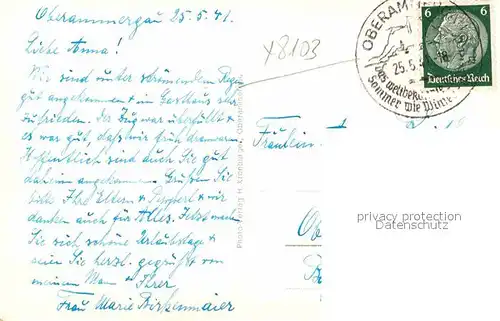 Oberammergau 25.5.41.
Liebe Anna!
Wir sind unter strömendem Regen
gut angekommen & im Gasthaus sehr
zufrieden. Der Zug war überfüllt &
es war gut, daß wir früh dran waren.
Hoffentlich sind auch Sie gut
daheim angekommen. Grüßen Sie
bitte Ihre Eltern & & wir
danken auch für Alles. Jetzt
Sie sich schöne Urlaubstage &
seien Sie herzl. gegrüßt von
meinem Mann & Ihrer
Frau Marie Birkenmaier
X8103
Photo-Verlag H. Kronburger, Oberammergau
OBERAMM
25.5.
Das weltber
Sommer wie Winter
6 6
Deutsches Reich
Fräulein
Ob
privacy protection
Datenschutz